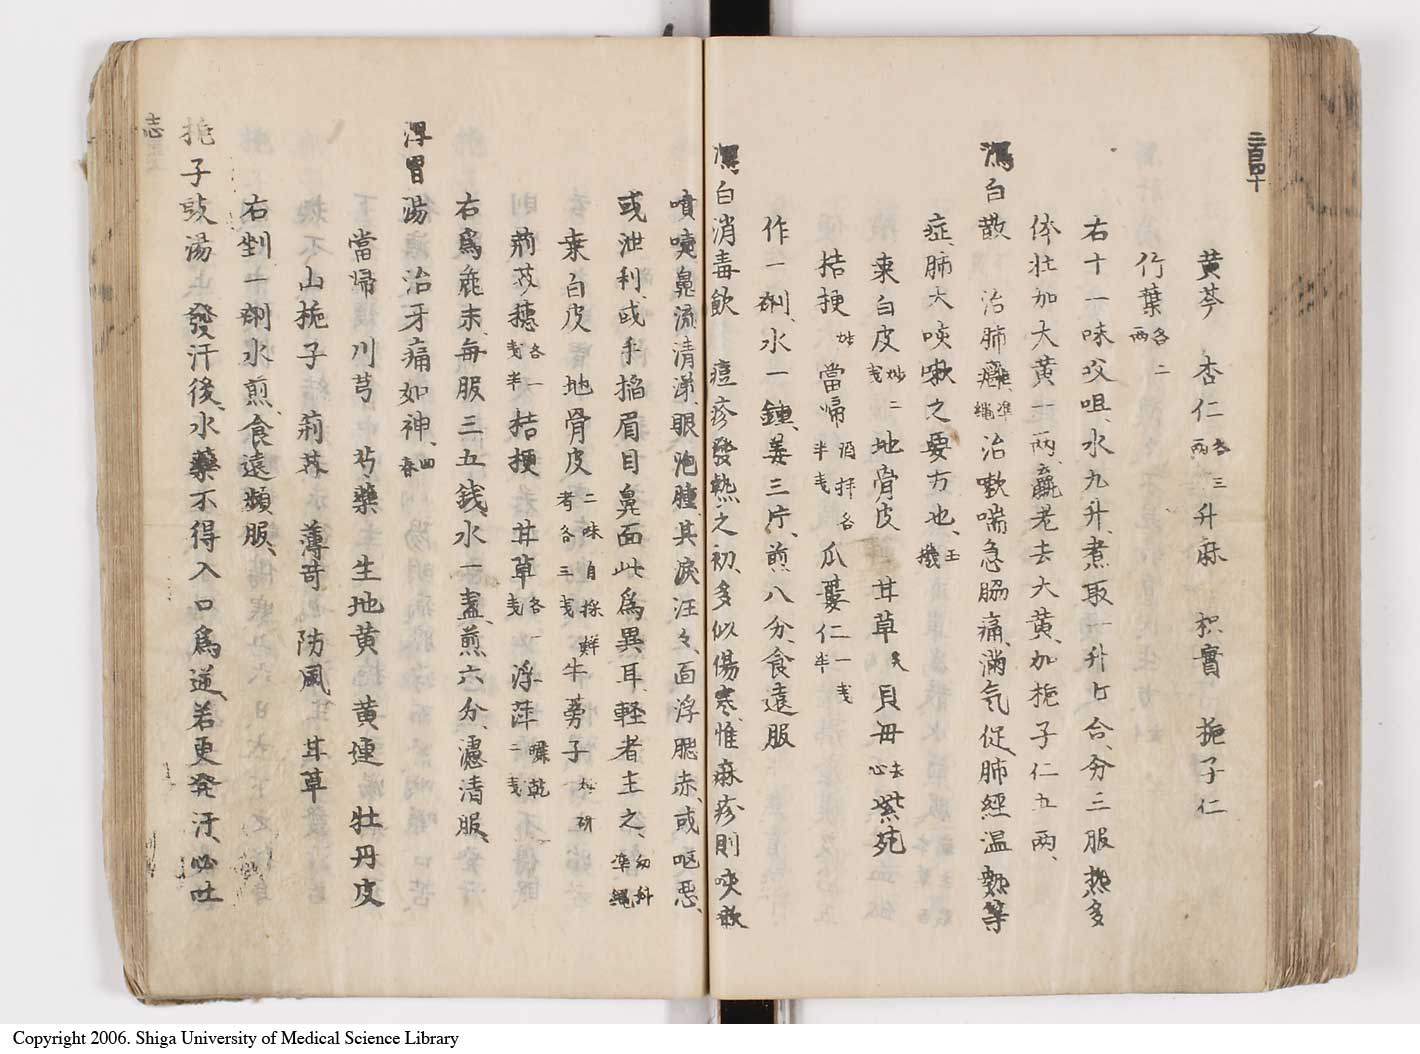 二百四十
黄芩 杏仁各三両 升麻 枳實 梔子仁
竹葉各二両
右十一味㕮咀、水九升、煮取一升七合、分三服、熱多
体壮加大黄一両、羸老去大黄、加梔子仁五両、
瀉白散 治肺癰準繩治嗽喘急脇痛、滿気促、肺經温熱等
症、肺大咳嗽之要方也、玉機
桒白皮炒二戋 地骨皮 甘草炙 貝母去心 紫苑
桔梗炒 當帰酒拌各半戋 瓜蔞仁一戋半
作一剤、水一鍾、姜三片、煎八分、食遠服
瀉白消毒飲 痘疹發熱之初、多似傷寒、惟麻疹則咳嗽
噴嚏、鼻流清涕、眼泡腫、其淚汪々、面浮腮赤、或嘔悪、
或泄利、或手搯眉目鼻面、此為異耳、軽者主之、幼科準繩
桒白皮 地骨皮二味自採鮮者各三戋 牛蒡子炒研
荊芥穗各一戋半 桔梗 甘草各一戋 浮萍曬乾二戋
右為麁末、毎服三五銭、水一盞、煎六分、濾清服、
浮胃湯 治牙痛如神、回春
當帰 川芎 芍藥 生地黄 黄連 牡丹皮
山梔子 荊芥 薄苛 防風 甘草
右剉一剤、水煎、食遠頻服、
梔子豉湯 發汗後、水藥不得入口為逆、若更発汗、必吐
志